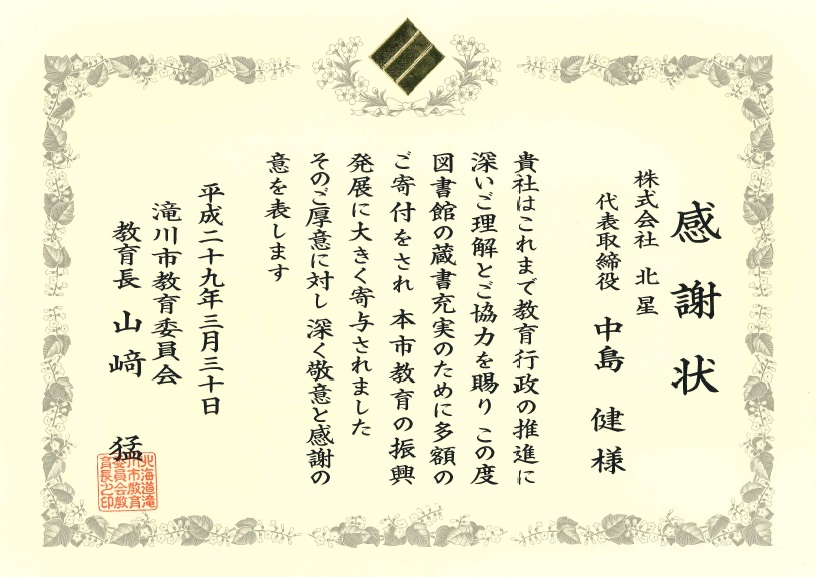 感謝状
株式会社 北星
代表取締役 中島 健 様
貴社はこれまで教育行政の推進に
深いご理解とご協力を賜り この度
図書館の蔵書充実のために多額の
ご寄付をされ 本市教育の振興
発展に大きく寄与されました
そのご厚意に対し 深く敬意と感謝の
意を表します
平成二十九年三月三十日
滝川市教育委員会
教育長 山﨑 猛
北海道滝
川市教育
委員会教
育長之印